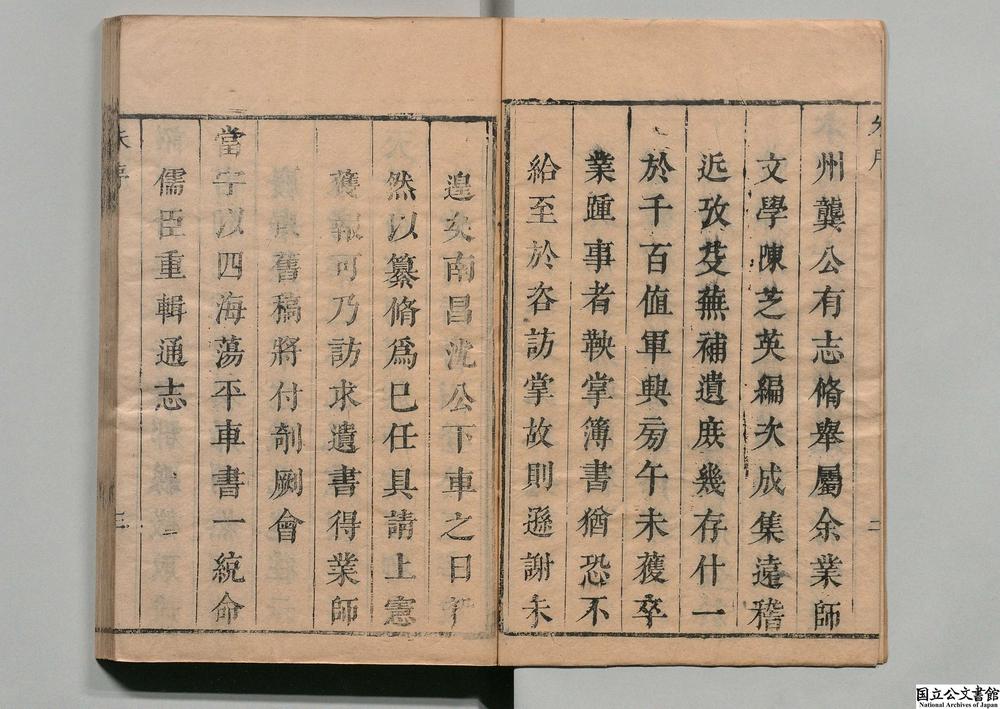 州龔公有志脩舉屬余業師
文學陳芝英編次成集遠稽
近攷芟蕪補遺庻幾存什一
於千百值軍興旁午未獲卒
業踵事者鞅掌簿書猶恐不
給至於咨訪掌故則遜謝未
二
遑矣南昌沈公下車之日
然以纂脩爲已任具請上憲
獲報可乃訪求遺書得業師
舊稿將付剞劂會
當宁以四海蕩平車書一統命
儒臣重輯通志
序
三
国立公文書館
National Archives of Japan